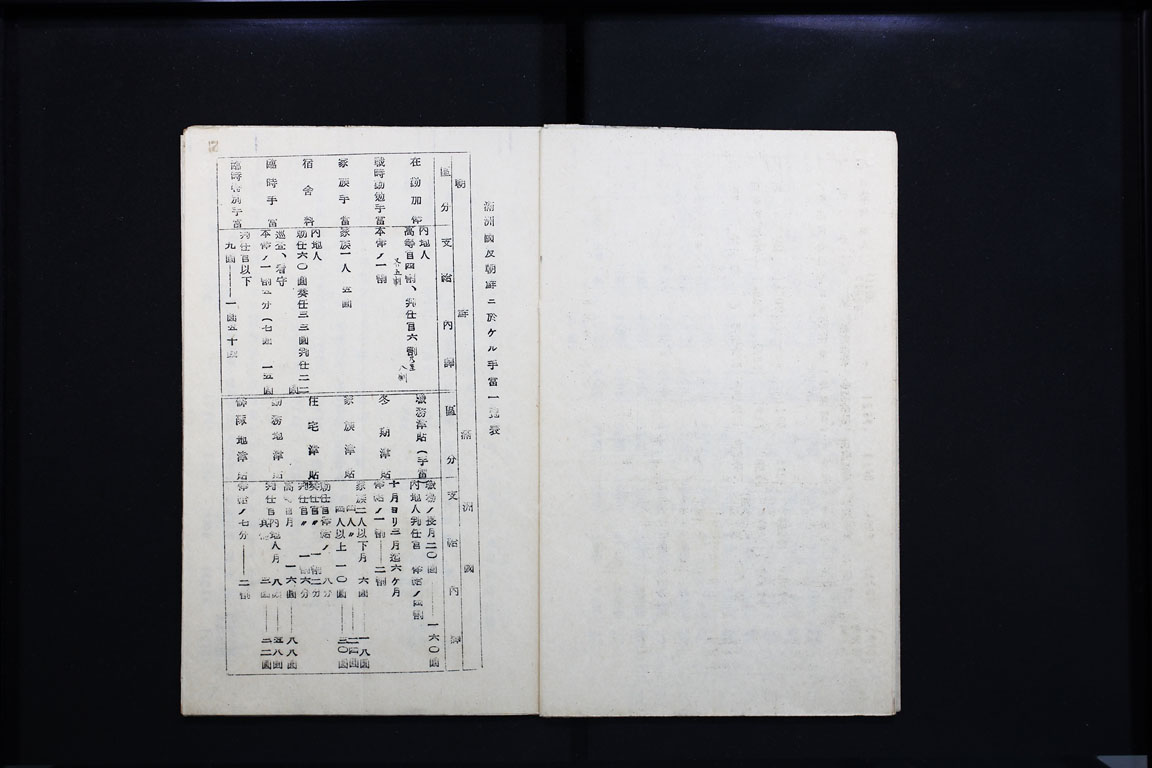 満洲國及朝鮮ニ於ケル手當一覽表
朝鮮
區分
支給内譯
在勤加俸
内地人
高等官四割、判任官六割乃至八割
戰時勤勉手當
本俸ノ一割
家族手當
家族一人 五圓
宿舍料
内地人
勅任六〇圓奏任三三圓判任二二圓
臨時手當
巡査、看守
本俸ノ一割五分(七圓 一五圓
臨時特別手當
判任官以下
九圓―一圓五十
滿洲國
區分
支給内譯
職務津貼(手當)
職務ノ長月二〇圓―一六〇圓
内地人判任官 俸給ノ四割
冬期津貼
十月ヨリ三月迄六ケ月
俸給ノ一割―二割
家族津貼
家族二人以下月 六圓―一八圓
四人〃
四人以上 一〇圓―三〇圓
住宅津貼
勅任官俸給ノ 八分
奏任官〃 一割二分
判任官〃 一割六分
勤務地津貼
高 月 一六圓―八八圓
判任官内地人月 八圓―五八圓
三圓―二二圓
特殊地津貼
俸給ノ七分―二割